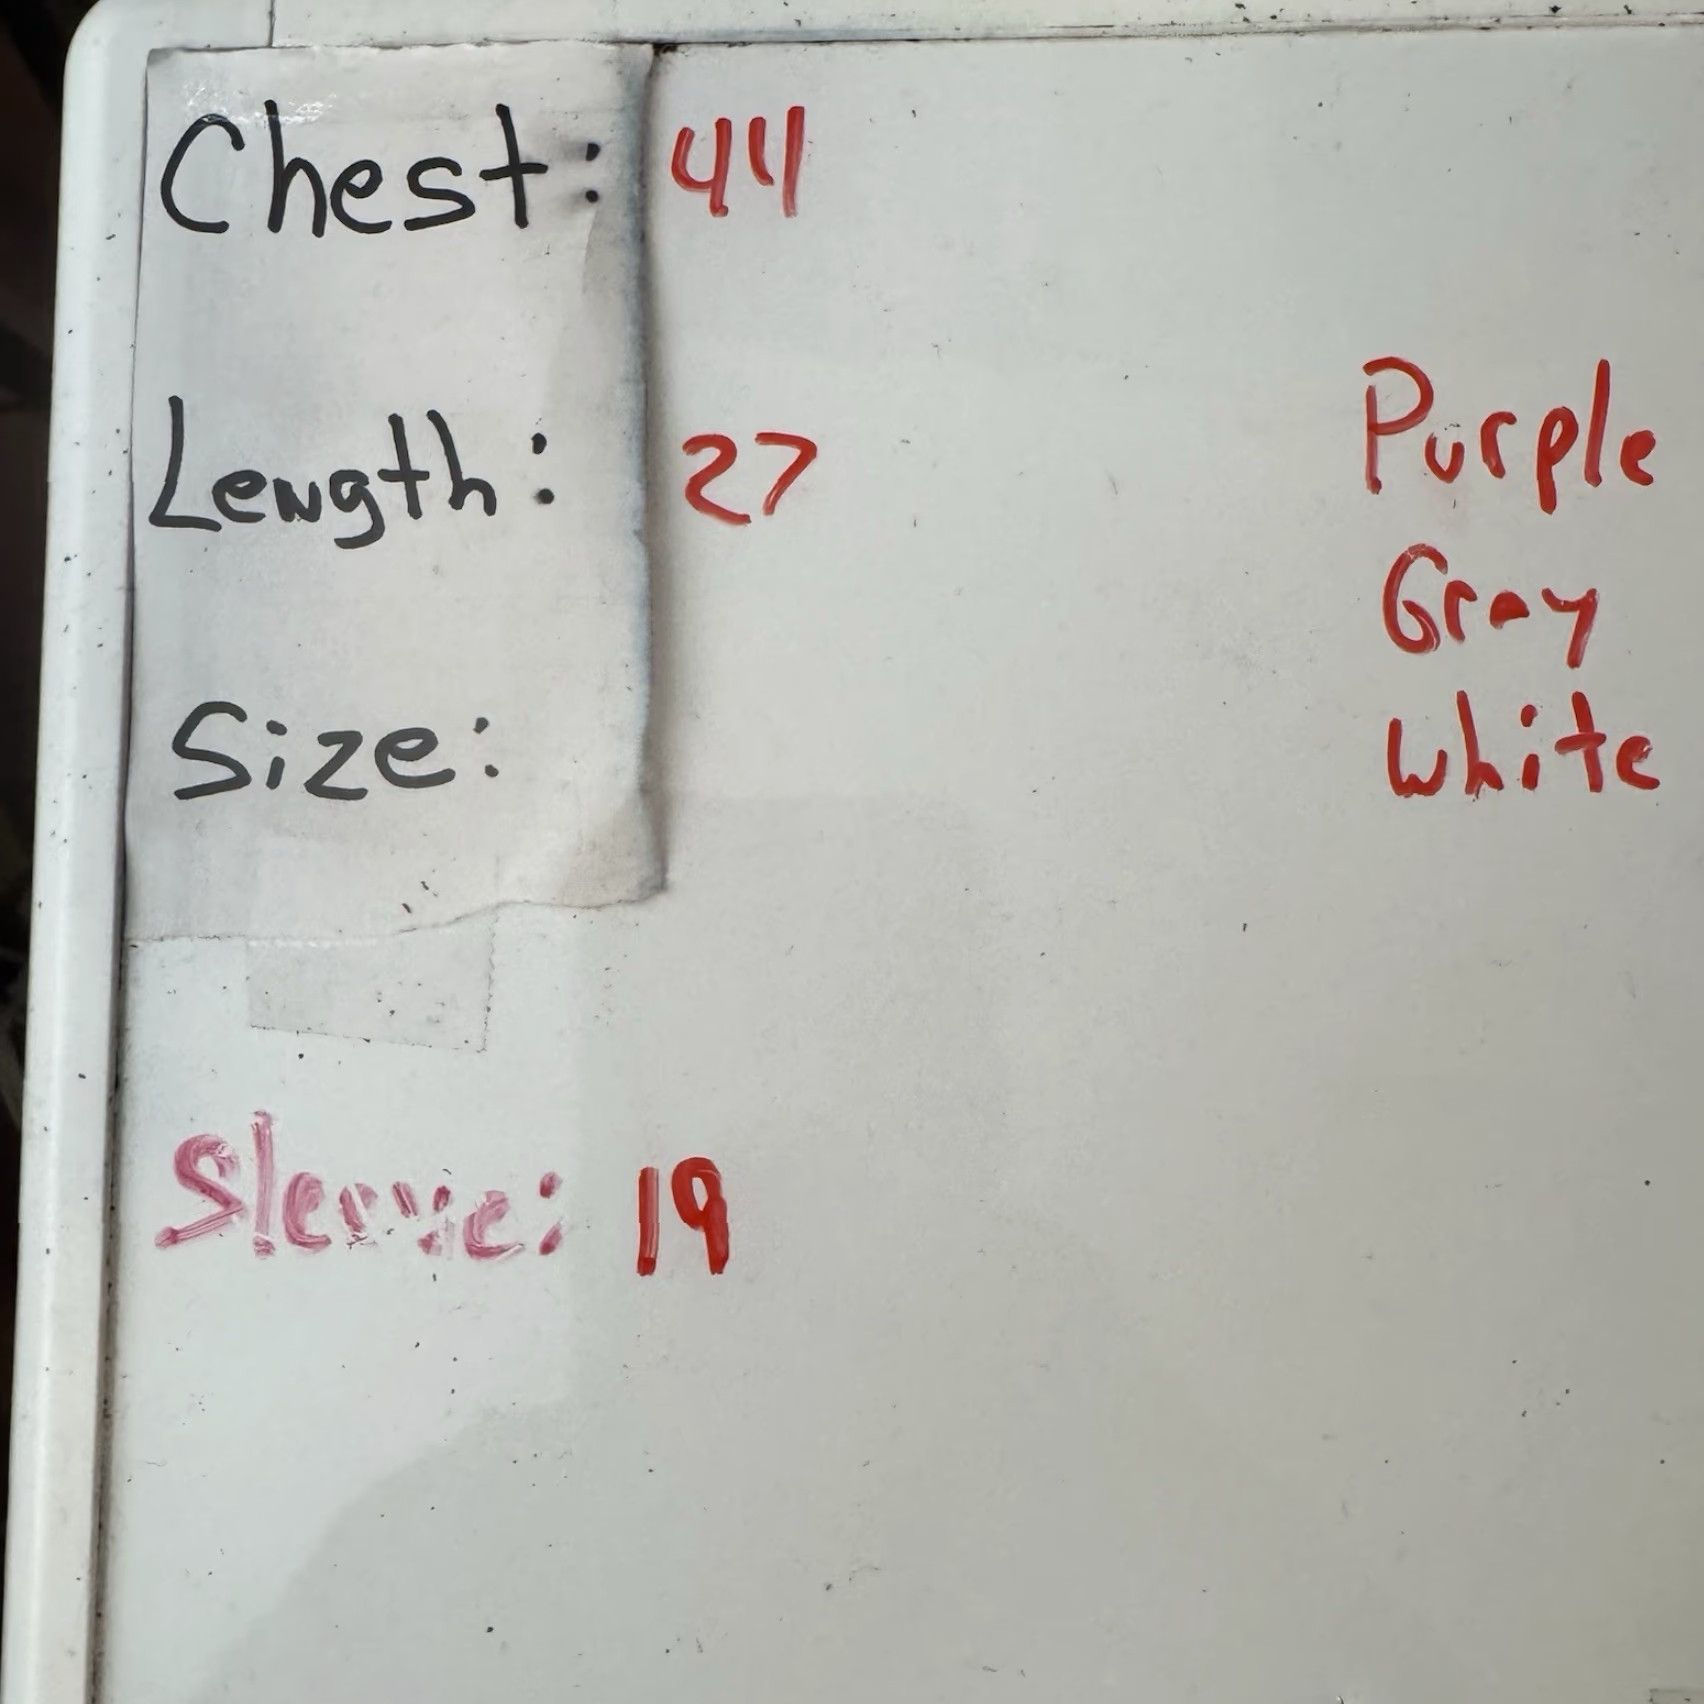 Chest: 44
Length: 27
Purple
Gray
Size:
White
Sleeve: 19